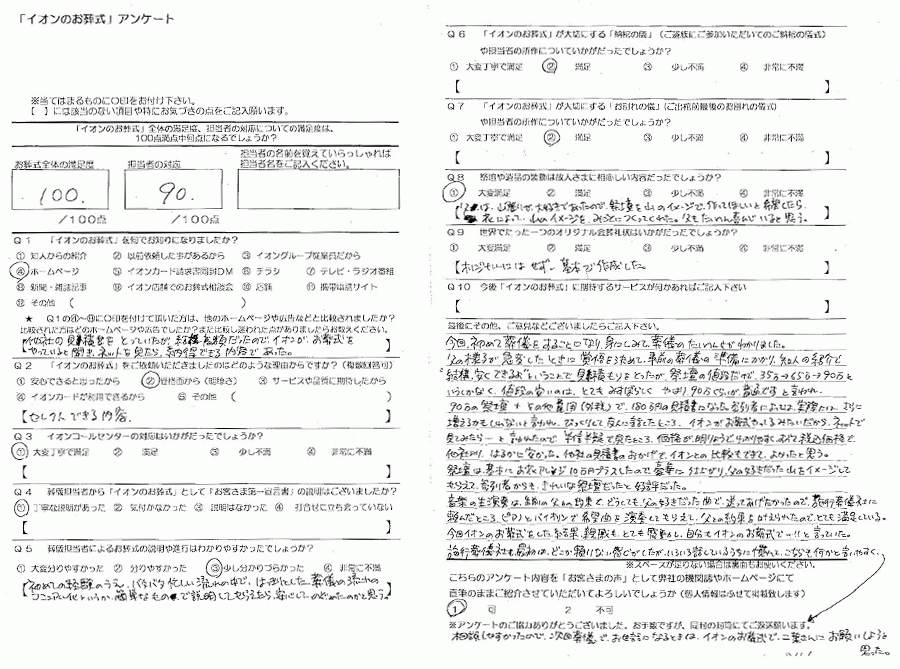 「イオンのお葬式」アンケート
※当てはまるものに〇印をお付け下さい。
【　】には該当のない項目や特にお気づきの点をご記入願います。
「イオンのお葬式」全体の満足度、担当者の対応についての満足度は、
100点満点中何点になるでしょうか？
お葬式全体の満足度
100.
／100点
担当者の対応
90.
／100点
担当者の名前を覚えていらっしゃれば
担当者名をご記入ください。
Q1 「イオンのお葬式」を何でお知りになりましたか？
① 知人からの紹介 ② 以前依頼した事があるから ③ イオングループ従業員だから
④ ホームページ ⑤ イオンカード請求書同封DM ⑥ チラシ ⑦ テレビ・ラジオ番組
⑧ 新聞・雑誌記事 ⑨ イオン店舗でのお葬式相談会 ⑩ 店舗 ⑪ 携帯電話サイト
⑫ その他 （　　　）
★ Q1の④～⑪に〇印を付けて頂いた方は、他のホームページや広告などと比較されましたか？
比較された方はどのホームページや広告でしたか？また比較し迷われた点がありましたらお教えください。
他社の見積をとっていたが、結構高額だったのでイオンが、お葬式を
やっていると聞き、ネットを見たら、納得できる内容であった。】
Q2 「イオンのお葬式」をご依頼いただきましたのはどのような理由からですか？（複数回答可）
① 安心できると思ったから ② 経済面から（明瞭さ） ③ サービスや品質に期待したから
④ イオンカードが利用できるから ⑤ その他 （　　　）
【セレクトできる内容.　】
Q3 イオンコールセンターの対応はいかがだったでしょうか？
① 大変丁寧で満足 ② 満足 ③ 少し不満 ④ 非常に不満
【　】
Q4 葬儀担当者から「イオンのお葬式」として『お客さま第一宣言書』の説明はございましたか？
① 丁寧な説明があった ② 気付かなかった ③ 説明はなかった ④ 打合せに立ち会っていない
【　】
Q5 葬儀担当者によるお葬式の説明や進行はわかりやすかったでしょうか？
① 大変分りやすかった ② 分りやすかった ③ 少し分かりづらかった ④ 非常に不満
【初めての経験のうえ、バタバタ忙しい流れの中で、はっきりとした葬儀の流れの
マニュアル化というか、簡単なもので説明してもらえたら、安心してのぞめたのかと思う。】
Q6 「イオンのお葬式」が大切にする「納棺の儀」（ご遺族にご参加いただいてのご納棺の儀式）
や担当者の所作についていかがだったでしょうか？
① 大変丁寧で満足 ② 満足 ③ 少し不満 ④ 非常に不満
【　】
Q7 「イオンのお葬式」が大切にする「お別れの儀」（ご出棺前最後のお別れの儀式）
や担当者の所作についていかがだったでしょうか？
① 大変丁寧で満足 ② 満足 ③ 少し不満 ④ 非常に不満
【　】
Q8 祭壇や遺品の装飾は故人さまに相応しい内容だったでしょうか？
① 大変満足 ② 満足 ③ 少し不満 ④ 非常に不満
【父は、山登りが大好きであったので、祭壇を山のイメージで、作ってほしいと希望したら、
花によって、山のイメージを、みごとにつくってくれた。父もたいへん喜んでいると思う。】
Q9 世界でたった一つのオリジナル会葬礼状はいかがだったでしょうか？
① 大変満足 ② 満足 ③ 少し不満 ④ 非常に不満
【オリジナルにはせず、基本で作成した。】
Q10 今後「イオンのお葬式」に期待するサービスが何かあればご記入下さい
【　】
最後にその他、ご意見などございましたらご記入下さい。
今回、初めて葬儀をすることになり、身にしみて、葬儀のたいへんさがわかりました。
父の様子が急変したときに、覚悟を決めて、事前の葬儀の準備にかかり、知人の紹介で
"結構、安くできるよ"ということで見積もりをとったが、祭壇の値段だけで、35万→65万→90万と
いうしかなく、値段の安いのは、とてもみすぼらしく、やはり90万ぐらいが普通ですと言われ、
90万の祭壇＋その他費用（外税）で、180万円の見積書になった。参列者によれば、実際には、さらに
増えるかもしれないと言われ、びっくりして友人に話したところ、イオンがお葬式やってるみたいだから、ネットで
見てみたら―と言われたので、半信半疑で見たところ、価格が、明りょうでわかりやすく、すべて税込価格で、
他社より、はるかに安かった。他社の見積書のおかげで、イオンとの比較もできて、よかったと思う。
祭壇は、基本にお花アレンジ10万円プラスしたので、豪華に仕上がり、父の好きだった山をイメージして
もらえて、参列者からも、きれいな祭壇だったと好評だった。
音楽の生演奏は、生前の父との約束で、どうしても、父の好きだった曲で、送ってあげたかったので、施行葬儀社に
頼んだところ、ピアノとバイオリンで希望曲を演奏してもらえて、父との約束をかなえられたので、とても満足している。
今回イオンのお葬式をした結果、親戚も、とても感動し、自分もイオンのお葬式で―!!と言っていた。
施行葬儀社も、最初は、どこか頼りない感じがしたが、いろいろ話しているうちに慣れて、こちらも何かと言いやすく、
※スペースが足りない場合は裏面もお使いください。
こちらのアンケート内容を「お客さまの声」として弊社の機関誌やホームページにて
直筆のままご紹介させていただいてよろしいでしょうか（個人情報は伏せて掲載致します）
1 可 2 不可
※アンケートのご協力ありがとうございました。お手数ですが、同封の封筒にてご返送願います。
相談しやすかったので、次回葬儀で、お世話になるときは、イオンのお葬式で、二葉さんにお願いしようと
思った。